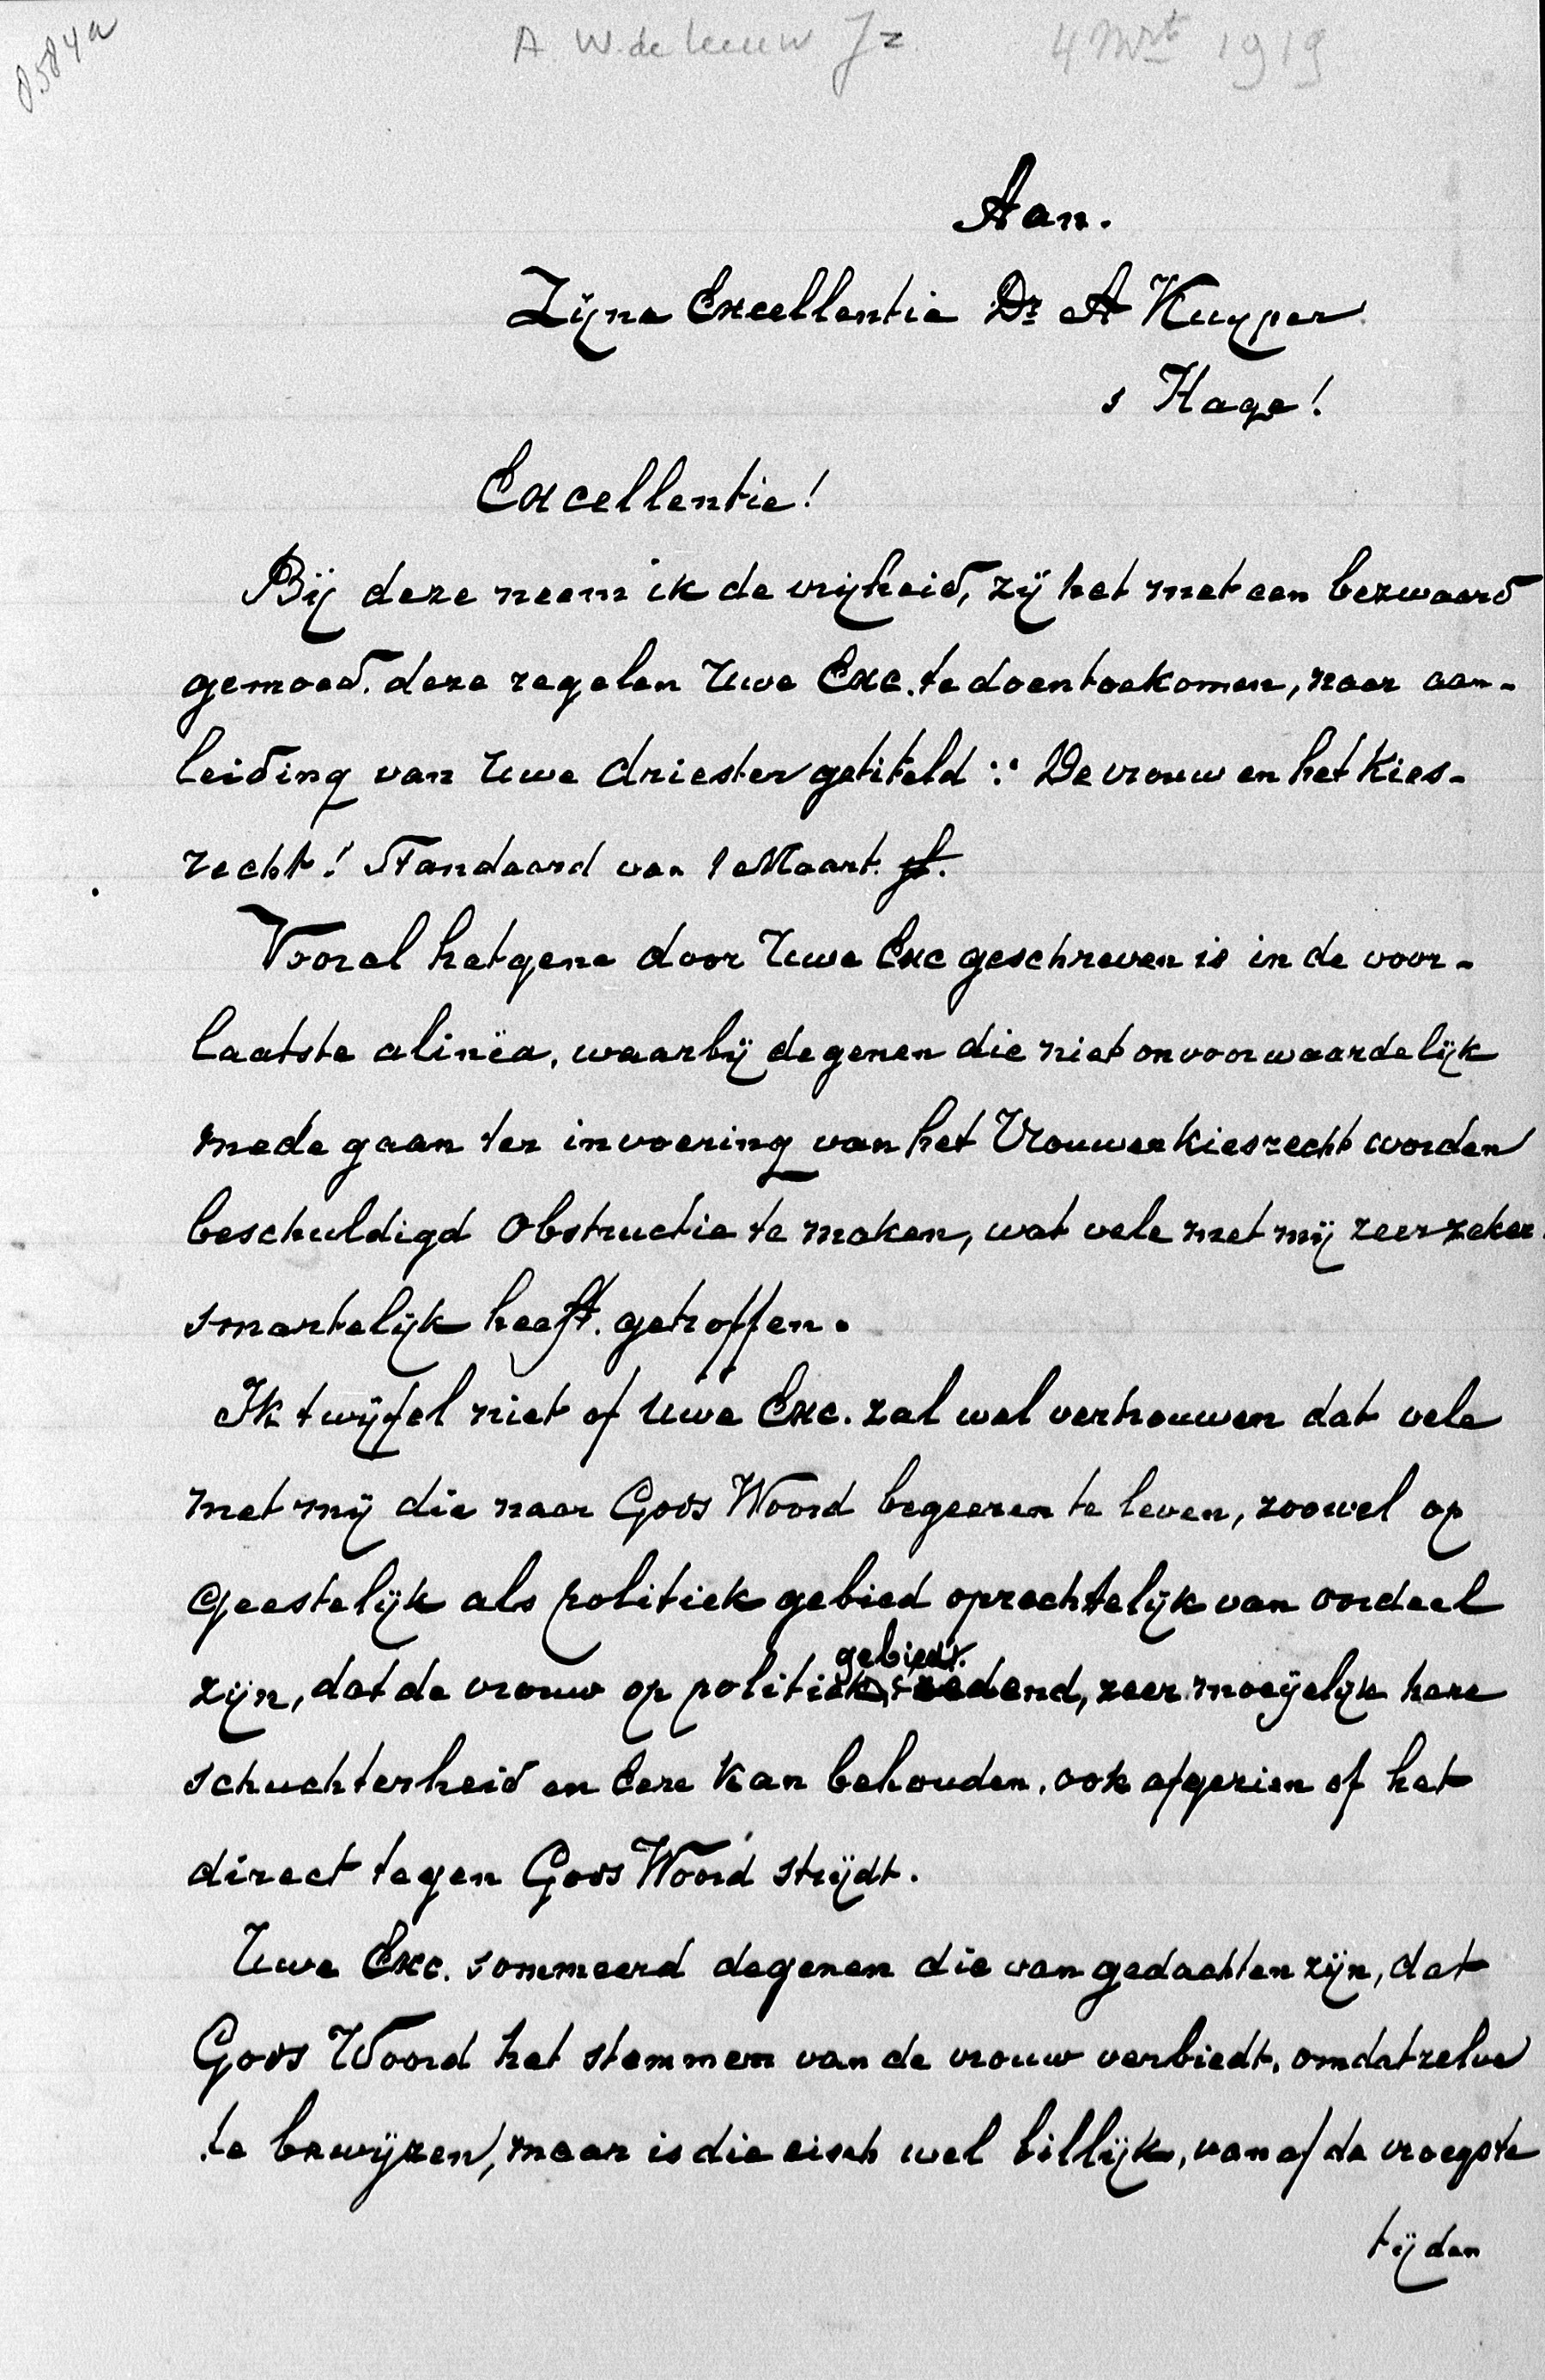 8584a
A. W. de Leeuw Jz. 4 Mrt 1919
Aan.
Zijne Excellentie Dr A Kuyper
s Hage!
Excellentie!
Bij deze neem ik de vrijheid, zij het met een bezwaard
gemoed. deze regelen Uwe Exc. te doen toekomen, naar aan-
leiding van Uwe driester getiteld :" De vrouw en het Kies-
recht! Standaard van 1 Maart. jl.
Vooral hetgene door Uwe Exc geschreven is in de voor-
laatste alinëa, waarbij degenen die niet onvoorwaardelijk
mede gaan ter invoering van het Vrouwenkiesrecht worden
beschuldigd Obstructie te maken, wat vele met mij zeer zeker
smartelijk heeft. getroffen.
Ik twijfel niet of Uwe Exc. zal wel vertrouwen dat vele
met mij die naar Gods Woord begeeren te leven, zoowel op
Geestelijk als politiek gebied oprechtelijk van oordeel
gebied.
zijn, dat de vrouw op politiek, tredend, zeer moeijelijk hare
schuchterheid en Eere kan behouden, ook afgezien of het
direct tegen Gods Woord strijdt.
Uwe Exc. sommeerd degenen die van gedachten zijn, dat
Gods Woord het stemmen van de vrouw verbiedt, om datzelve
te bewijzen, maar is die eisch wel billijk, van af de vroegste
tijden